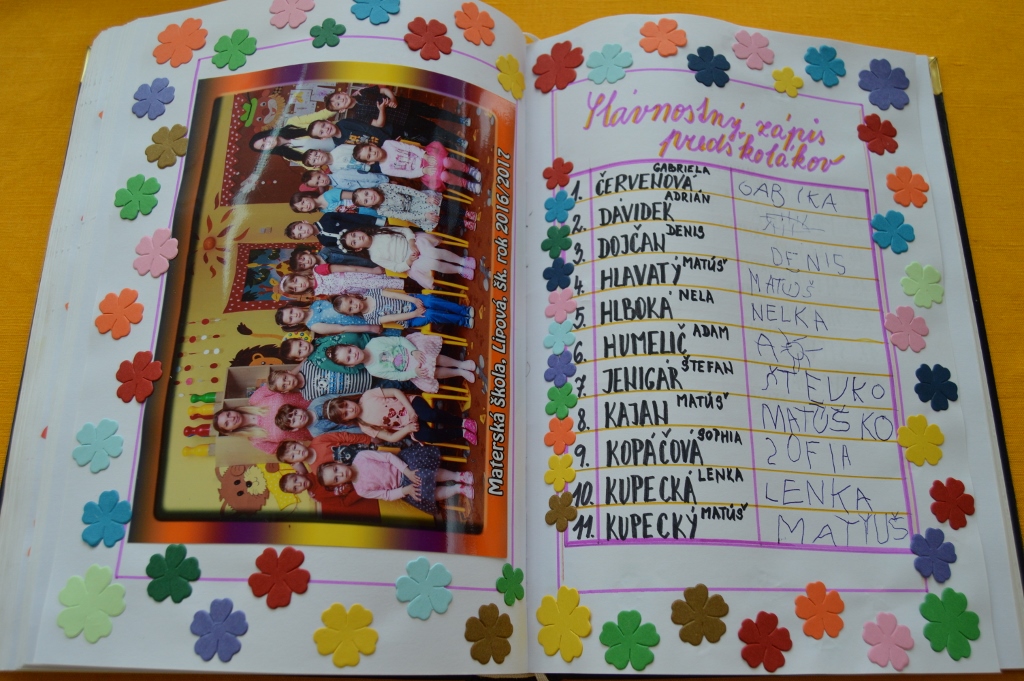 Materská škola, Lipová, šk. rok 2016/2017
Slávnostný zápis
predškolákov
1. ČERVENOVÁ GABRIELA GABIKA
2. DÁVIDEK ADRIÁN
3. DOJČAN DENIS DENIS
4. HLAVATÝ MATÚŠ MATUŠ
5. HLBOKÁ NELA NELKA
6. HUMELIČ ADAM
7. JENIGÁR ŠTEFAN ŠTEVKO
8. KAJAN MATÚŠ MATÚŠKO
9. KOPÁČOVÁ SOPHIA ZOFIA
10. KUPECKÁ LENKA LENKA
11. KUPECKÝ MATÚŠ MATTUŠ